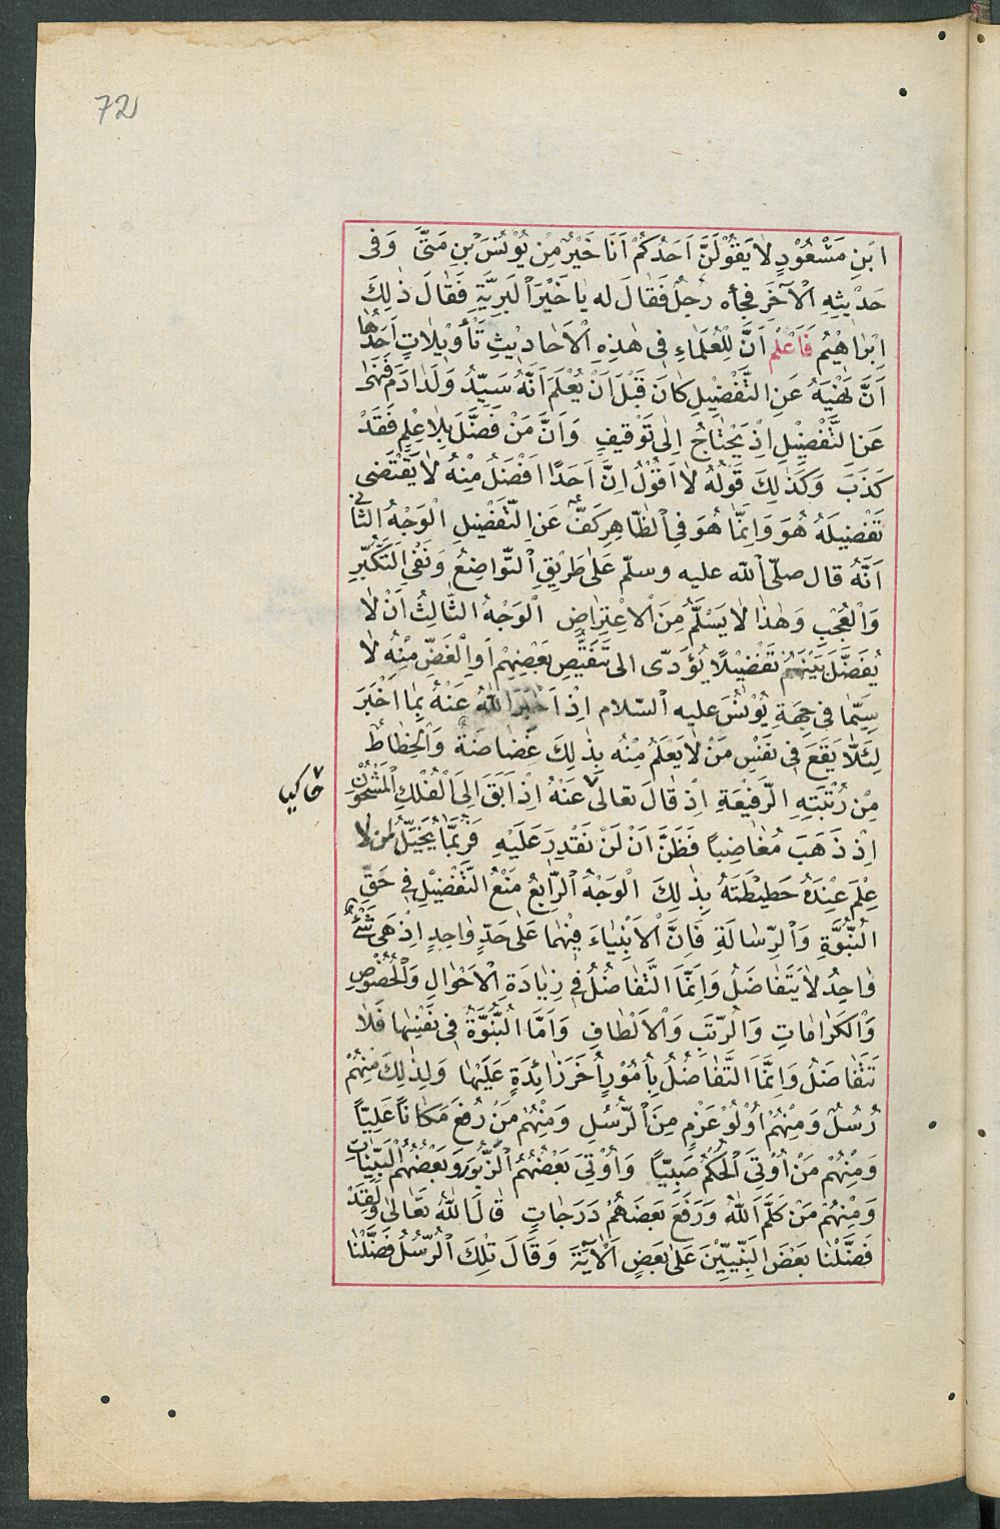 72
ابْنِ مَسْعُوْدٍ لاٰ يَقُوْلَنَّ اَحَدُكُمْ اَنَا خَيْرٌ مِنْ يُوْنُسَ بْنِ مَتّىَٰ وَفى
حَدِيْثِهِ الْاٰخَرَ فجأه رَجُلٌ فَقٰالَ له يٰا خَيْرَ اٰلْبَرِيَّةِ فَقٰالَ ذٰلِكَ
اِبْرٰاهٖيْمُ فَاَعْلَمْ اَنَّ لِلْعُلَمٰاءِ فى هٰذِهِ الْاَحٰاديْثِ تَأْوٖيْلٰاتٍ اَحَدُهٰا
اَنَّ نَهْيَهُ عَنِ التَّفْضٖيْلِ كٰانَ قَبْلَ اَنْ يُعْلَمَ اَنَّهُ سَيِّدُ وَلَدِ اٰدَمَ فَنَهٰى
عَنِ التَّفْضٖيْلِ اِذْ يَحْتٰاجُ اِلٰى تَوْقٖيفٍ وَاَنَّ مَنْ فَضَّلَ بِلٰاعِلْمٍ فَقَدْ
كَذَبَ وَكَذٰلِكَ قَوْلُهُ لٰا اَقُوْلُ اِنَّ اَحَدًا اَفْضَلُ مِنْهُ لٰا يَقْتَضى
تَفْضٖيلَهُ هُوَ وَاِنَّمٰا هُوَ فِى اٰلظّٰاهِرِ كَفٌّ عَنِ التَّفْضٖيلِ الْوَجْهُ الثّٰانى
اَنَّهُ قال صلّى اٰلله عليه وسلّم عَلٰى طَرٖيْقِ اٰلتَّوٰاضِعُ وَنَفْىِ التَّكَبُّرِ
وَالْعُجْبِ وَهٰذٰا لٰا يَسْلَمُ مِنَ اٰلْاِعْتِرٰاضِ اَلْوَجْهُ الثّٰالِثُ اَنْ لٰا
يُفَضَّلَ بَيْنَهُمْ تَفْضٖيْلًا يُؤَدّى الى تَنَقُّصِ بَعْضِهِمْ اَوِ اٰلْغَضِّ مِنْهُ لٰا
سِيَّمٰا فى جِهَةِ يُوْنُسَ عليه اٰلسّلام اِذْ اَخْبَرَ اللهُ عَنْهُ بِمٰا اَخْبَرَ
لِئَلّٰا يَقَعَ فى نَفْسِ مَنْ لٰا يَعْلَمُ مِنْهُ بِذٰلِكَ غَضٰاضَةٌ وَانْحِطٰاطٌ
مِنْ رُتْبَتِهِ الرَّفٖيْعَةِ اِذْ قٰالَ تعالٰى عَنْهُ اِذْ اَبَقَ اِلَى اٰلْفُلْكِ الْمَشْحُوْنِ
اِذْ ذَهَبَ مُغٰاضِباً فَظَنَّ اَنْ لَنْ نَقْدِرَ عَلَيْهِ فَرُبَّمٰا يُخَيَّلُ لمن لٰا
عِلْمَ عِنْدَهُ حَطٖيْطَتَهُ بِذٰلِكَ اَلْوَجْهُ اٰلرّٰابِعُ مَنْعُ التَّفْضٖيْلِ فى حَقِّ
النُّبُوَّةِ وَاٰلرِّسٰالَةِ فَاِنَّ الْاَنْبِيٰاءَ فيْهٰا عَلٰى حَدٍّ وٰاحِدٍ اِذْ هِىَ شَئٌْ
وٰاحِدٌ لٰا يَتَفٰاضَلُ وَاِنَّمٰا التَّفٰاضُلُ فى زِيٰادَةِ الْاَحْوٰالِ وَالْخُصُوْصِ
وَالْكَرٰامٰاتِ وَالرُّتَبِ وَالْاَلْطٰافِ وَاَمَّا النُّبُوَّةُ فى نَفْسِهٰا فَلٰا
تَتَفٰاضَلُ وَاِنَّمَا التَّفٰاضُلُ بِاُمُوْرٍ اُخَرَ زٰائِدَةٍ عَلَيْهٰا وَلِذٰلِكَ مِنْهُمْ
رُسُلٌ وَمِنْهُمْ اُوْلُوْ عَزْمٍ مِنَ اٰلرُّسُلِ وَمِنْهُمْ مَنْ رُفِعَ مَكٰاناً عَلِيّاً
وَمِنْهُمْ مَنْ اُوْتِىَ اٰلْحُكْمَ صَبِيّاً وَاُوْتِىَ بَعْضُهُمُ اٰلزَّبُوْرَ وَبَعْضُهُمُ الْبَيِّنٰاتِ
وَمِنْهُمْ مَنْ كَلَّمَ اللهُ وَرَفَعَ بَعْضَهُمْ دَرَجٰاتٍ قٰالَ اللهُ تَعٰالٰى وَلَقَدْ
فَضَّلْنٰا بَعْضَ النَّبِيّٖيْنَ عَلٰى بَعْضٍ اَلْاٰيَةَ وَقٰالَ تِلْكَ الرُّسُلُ فَضَّلْنٰا